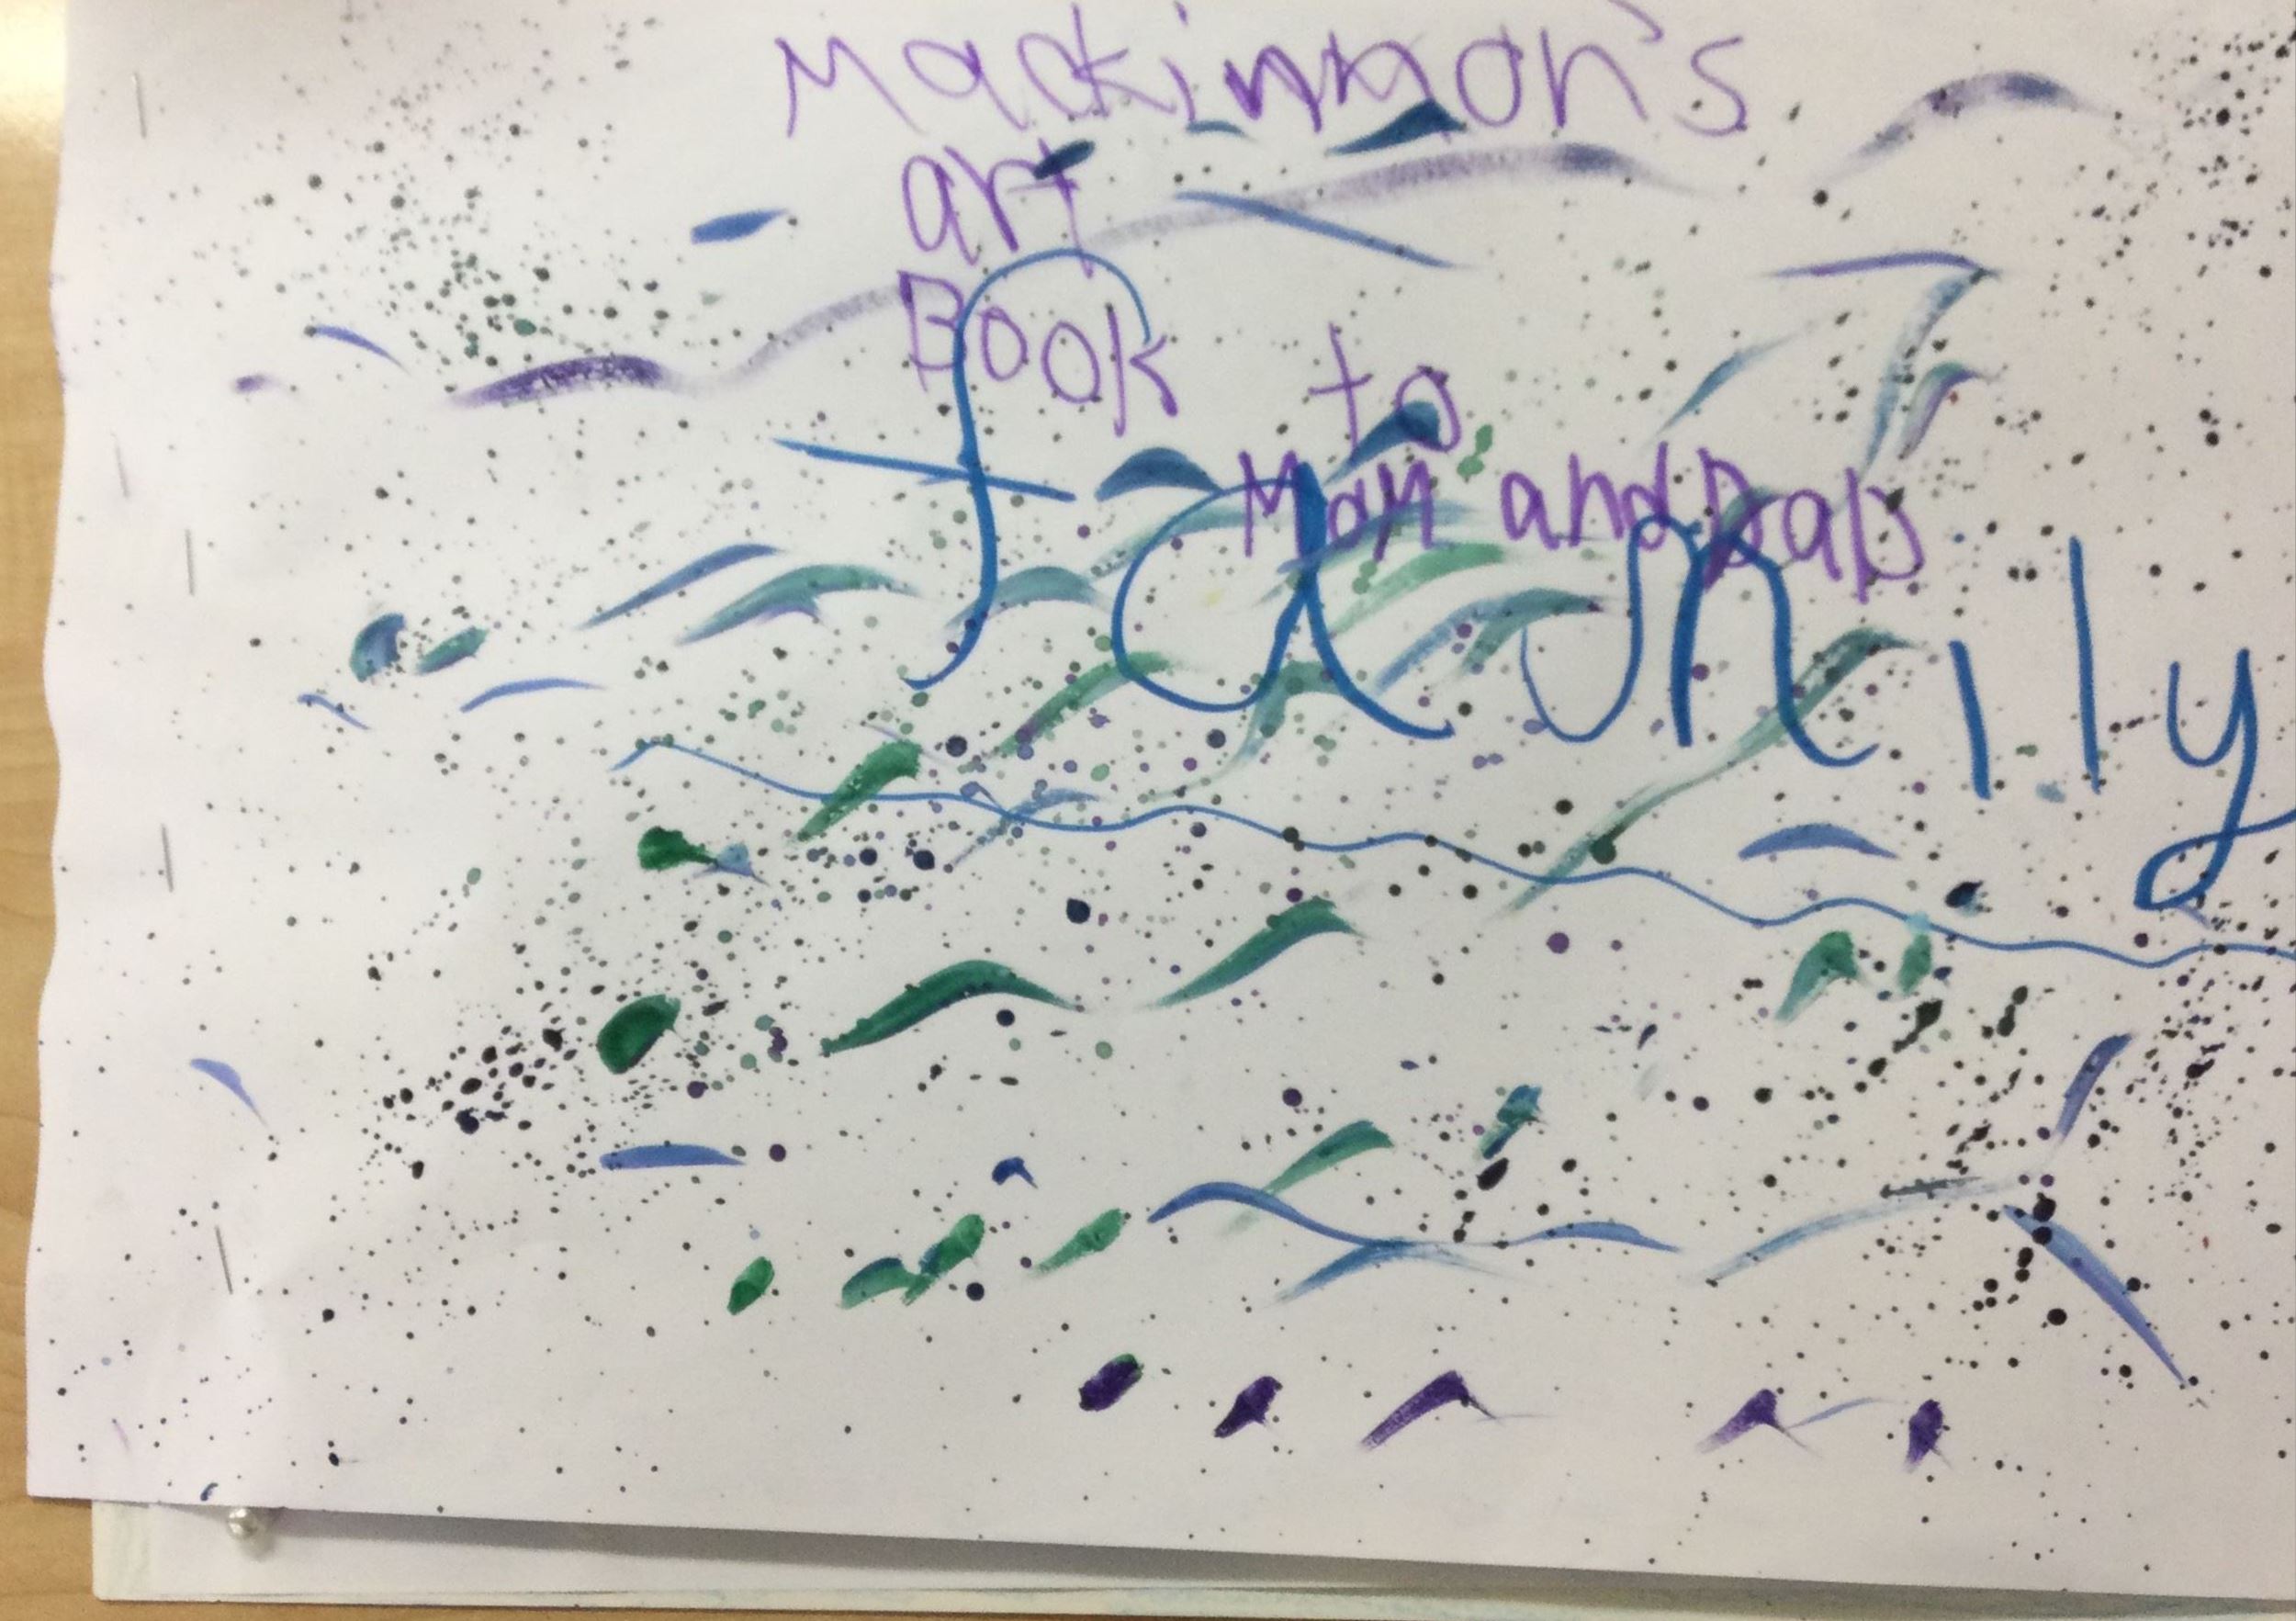 Mackinnon's
art
Book
to
Mom and Dad
family